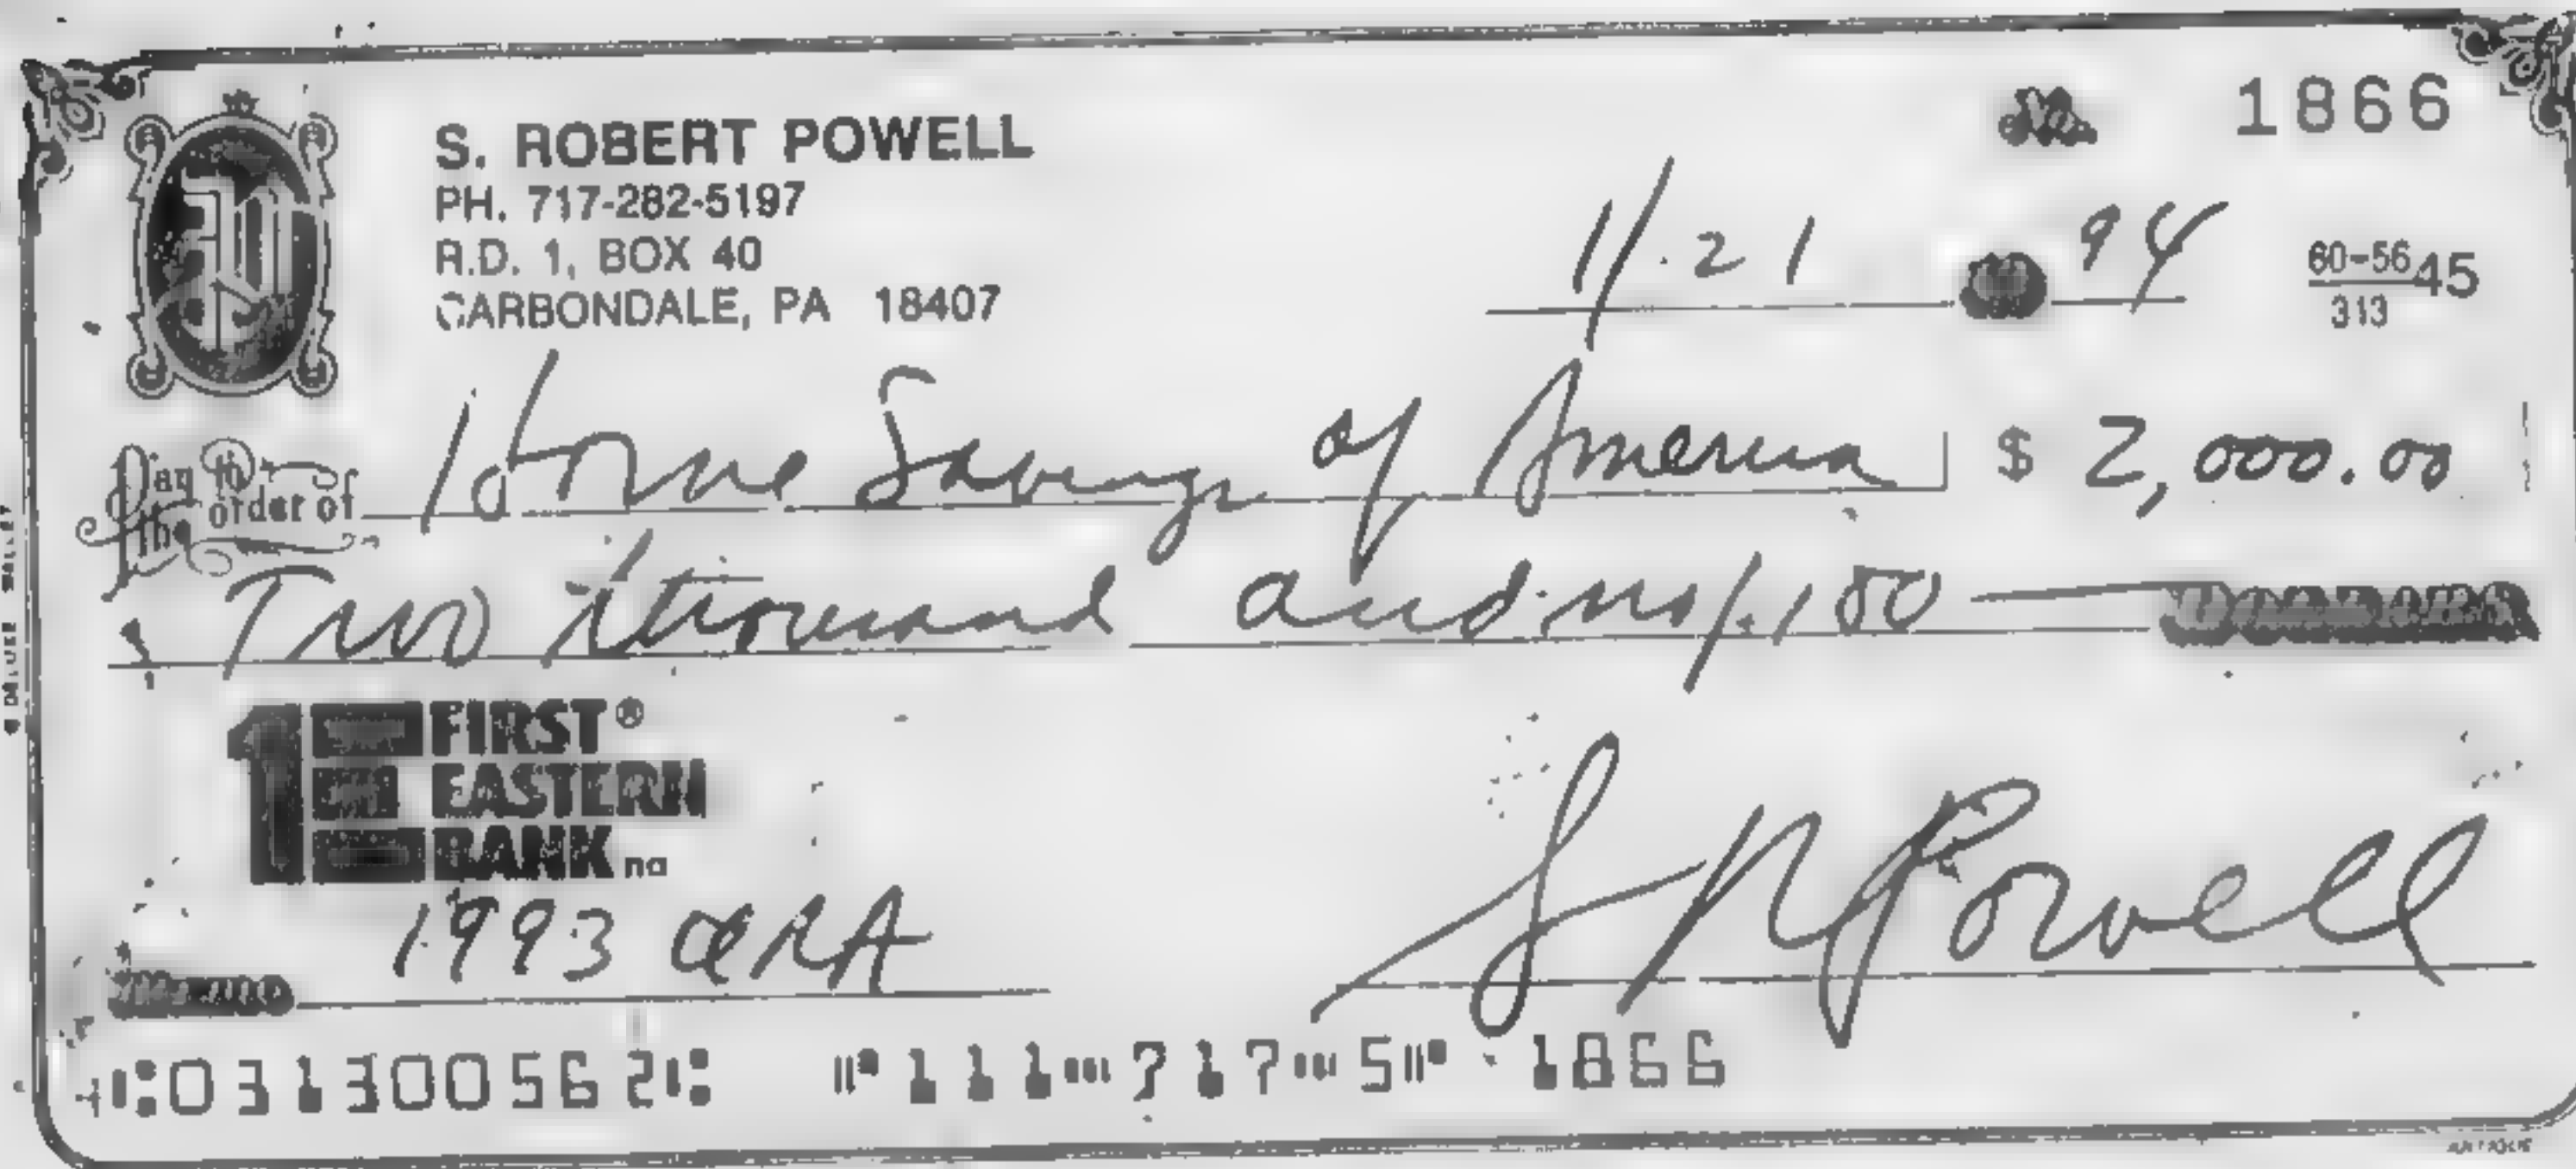 No. 1866
S. ROBERT POWELL
PH. 717-282-5197
R.D. 1, BOX 40
CARBONDALE, PA 18407
11.21 94
60-56 45
313
Pay to the order of Home Savings of America $ 2,000.00
Two thousand and no/100
1E FIRST® EASTERN BANK na
1993 IRA
S R Powell
⑆031300562⑆ ⑈111⑉717⑉5⑈ 1866